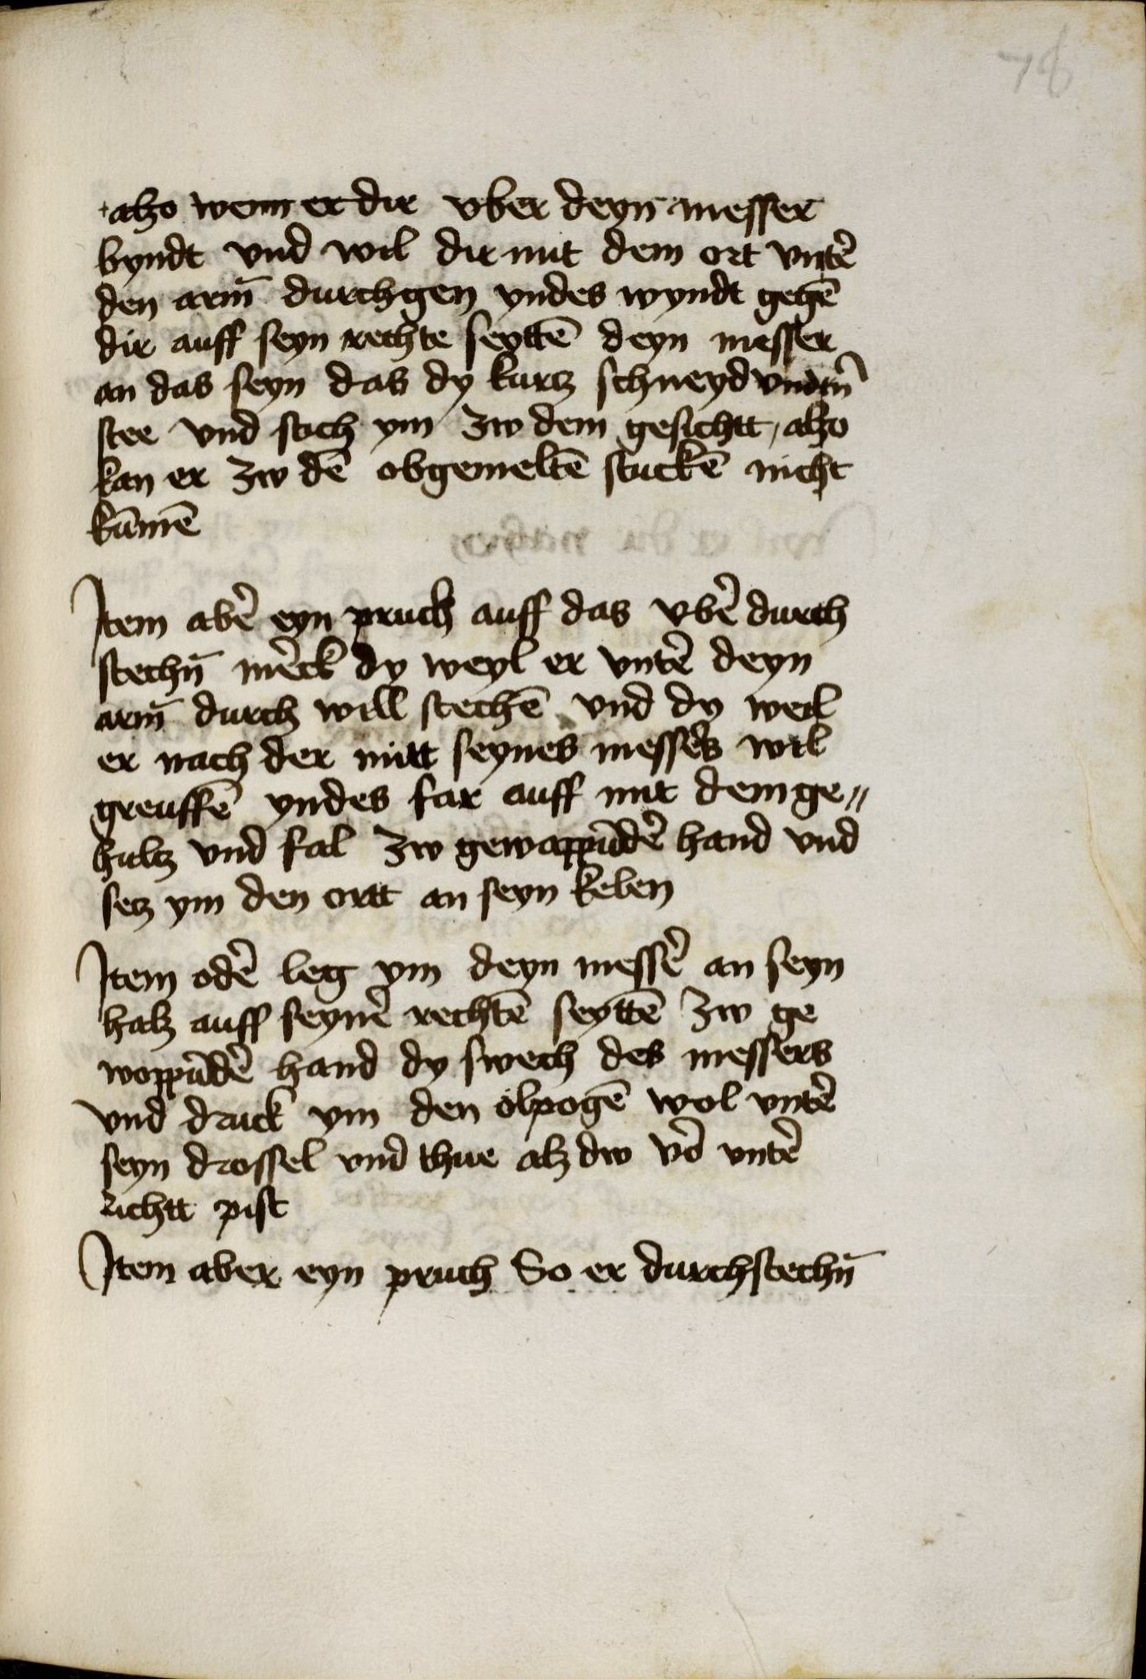 78
alzo wenn er dir vber deyn messer
byndt vnd wil dir mit dem ort vntẽ
den arm̄ durchgen yndes wyndt gegē
dir auff seyn rechte seyttē deyn messer
an das seyn das dy kurtz schneyd vndtñ
stee vnd stich ym zw dem gesichtt, alzo
kan er zw dē obgemeltē stuckē nicht
kūmē
Item abẽ eyn pruch auff das vbẽ durch
stechn̄ mẽck dy weyl er vntẽ deyn
arm̄ durch will stechē vnd dy weil
er nach der mitt seynes messẽs wil
greuffē yndes far auff mit dem ge〃
hultz vnd fal zw gewappũdẽ hand vnd
setz ym den ortt an seyn kelen
Item odẽ leg ym deyn messẽ an seyn
halz auff seynẽ rechtē seyttē zw ge
woppũdẽ hand dy swech des messers
vnd druck ym den olpogē wol vntẽ
seyn drossel vnd thue alz dw võ vntẽ
richtt pist
Item aber eyn pruch So er durchstechn̄